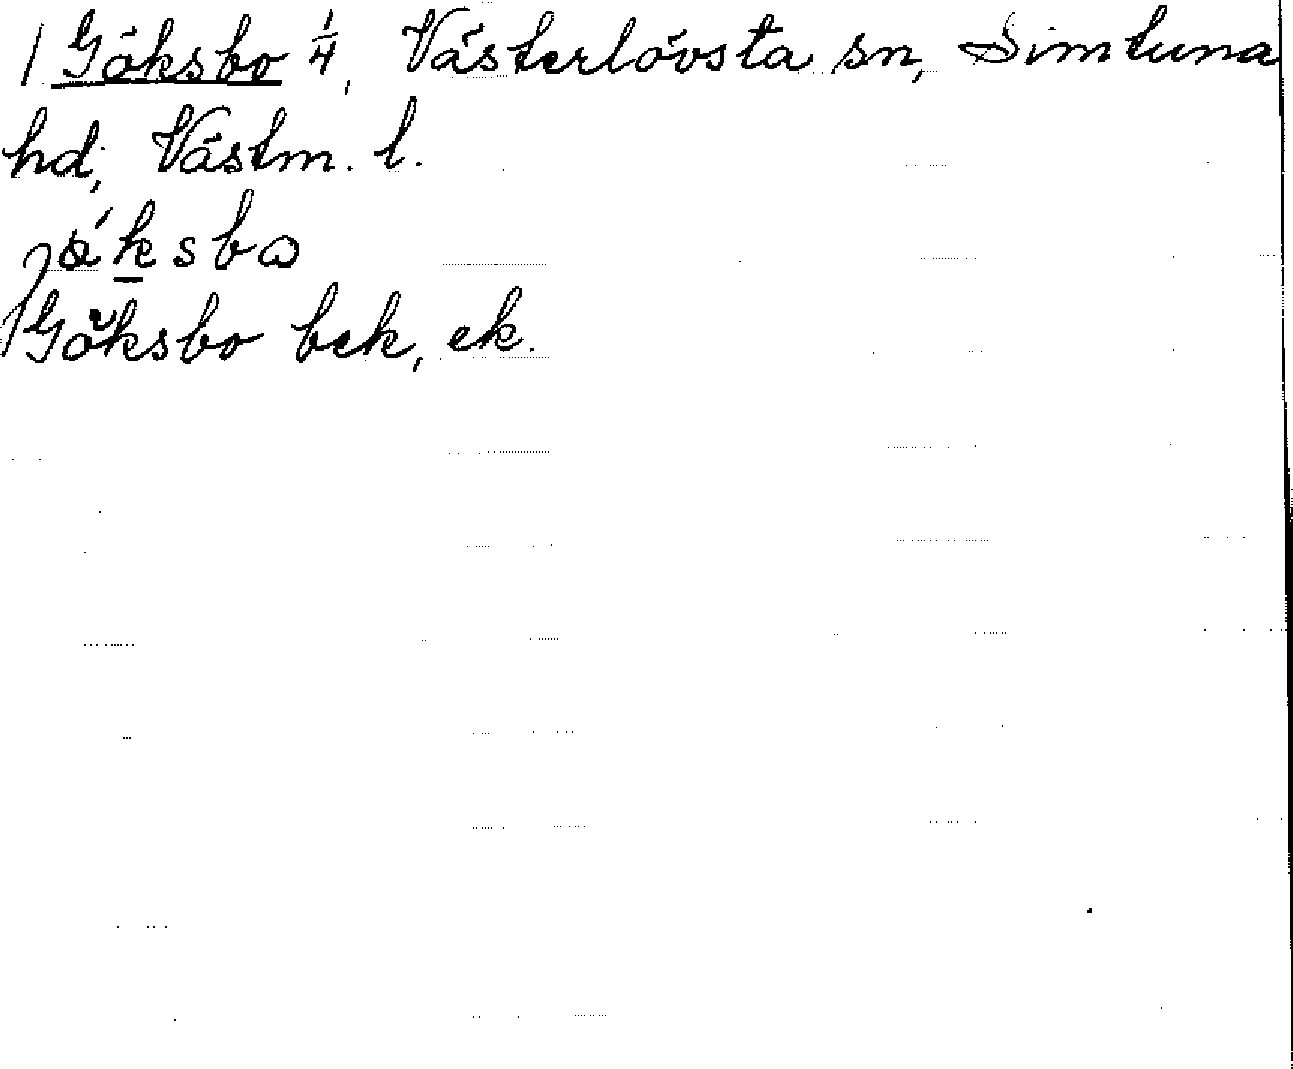 Göksbo 1/4, Västerlövsta sn, Simtuna
hd, Västm. l.
jö́ksbo
Göksbo bek, ek.